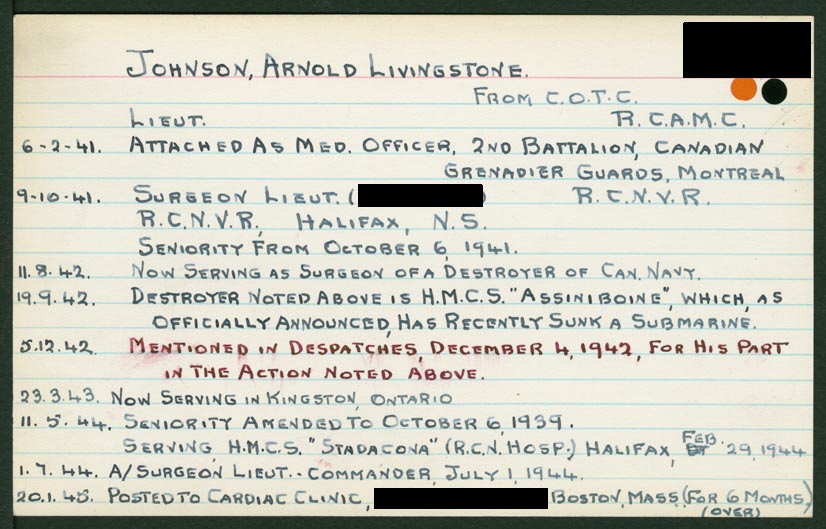 JOHNSON, ARNOLD LIVINGSTONE.
FROM C.O.T.C.
LIEUT. R.C.A.M.C.
6-2-41. ATTACHED AS MED. OFFICER, 2ND BATTALION, CANADIAN
GRENADIER GUARDS, MONTREAL
9-10-41. SURGEON LIEUT. ( ) R.C.N.V.R.
R.C.N.V.R., HALIFAX, N.S.
SENIORITY FROM OCTOBER 6, 1941.
11.8.42. NOW SERVING AS SURGEON OF A DESTROYER OF CAN. NAVY.
19.9.42. DESTROYER NOTED ABOVE IS H.M.C.S. "ASSINIBOINE", WHICH, AS
OFFICIALLY ANNOUNCED, HAS RECENTLY SUNK A SUBMARINE.
5.12.42. MENTIONED IN DESPATCHES, DECEMBER 4, 1942, FOR HIS PART
IN THE ACTION NOTED ABOVE.
23.3.43. NOW SERVING IN KINGSTON, ONTARIO
11.5.44. SENIORITY AMENDED TO OCTOBER 6, 1939.
SERVING, H.M.C.S. "STADACONA" (R.C.N. HOSP.) HALIFAX, FEB. 29, 1944
1.7.44. A/SURGEON LIEUT.-COMMANDER, JULY 1, 1944.
20.1.45. POSTED TO CARDIAC CLINIC, BOSTON, MASS. (FOR 6 MONTHS)
(OVER)